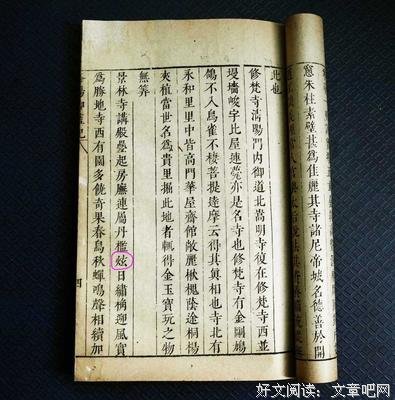 窻朱柱素壁甚爲佳麗其寺諸尼帝城名德善於開
此也
修梵寺清陽門内御道北嵩明寺復在修梵寺西並
墻峻宇比屋連甍亦是名寺也修梵寺有金剛鳩
鴿不入鳥雀不棲菩提達摩云得其眞相也寺北有
永和里里皆高門華屋齋館敞麗楸槐蔭途桐楊
夾植當世名爲貴里掘此地者輒得金玉寶玩之物
無筭
景林寺講殿疊起房廡連屬丹檻炫日繡桷迎風實
爲勝地寺西有園多饒奇果春鳥秋蟬鳴聲相續加
四
好文阅读：文章吧网